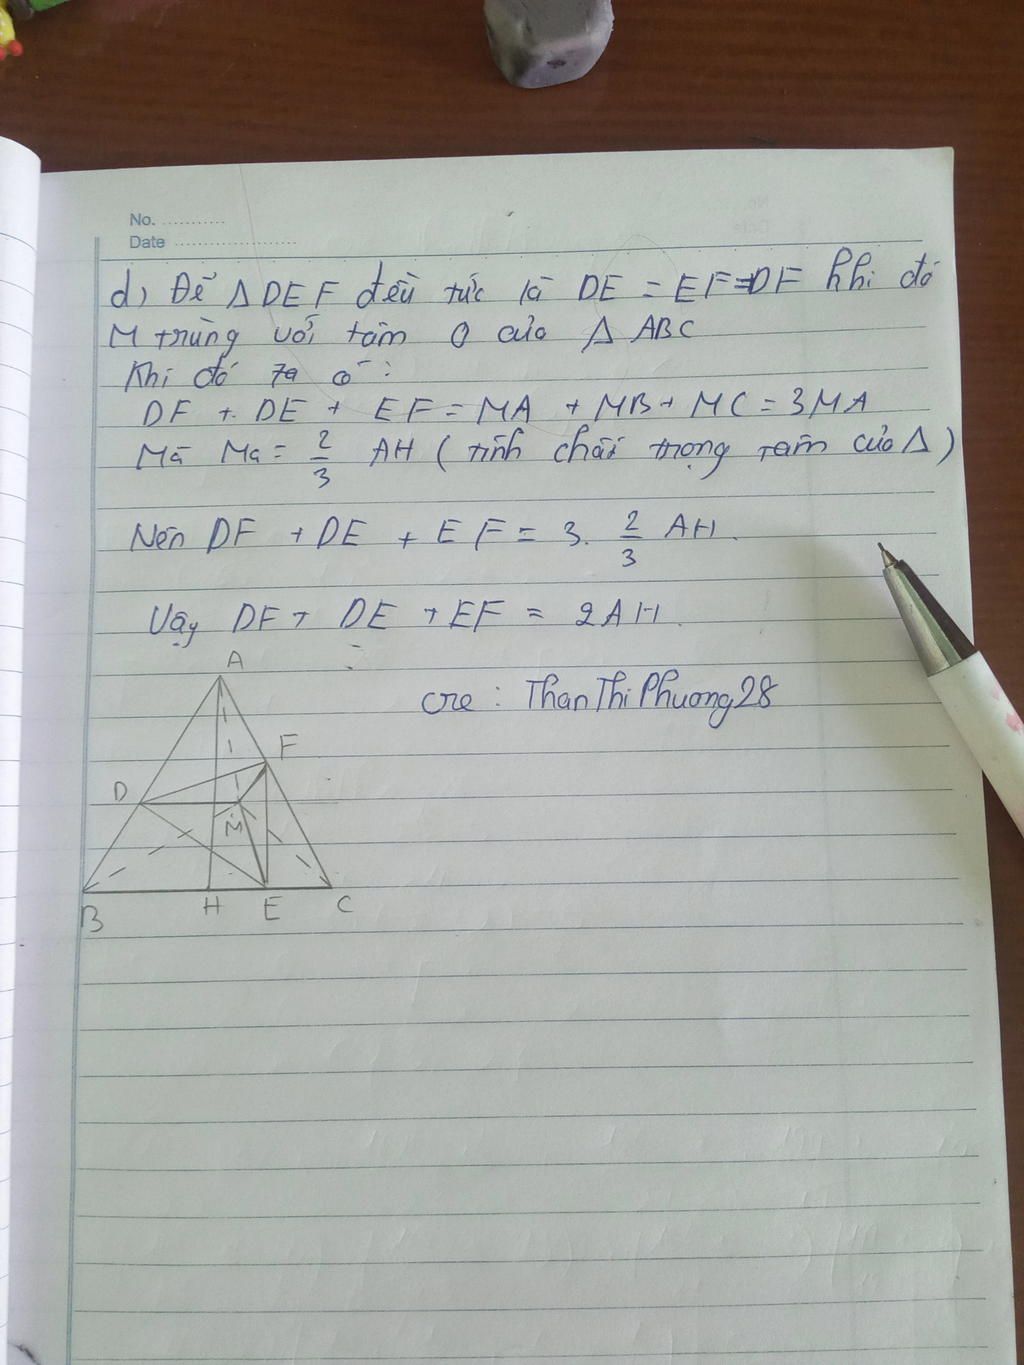 No. ...........
Date ......................
d) Để Δ DEF đều tức là DE = EF = DF khi đó
M trùng với tâm O của Δ ABC
Khi đó ta có :
DF + DE + EF = MA + MB + MC = 3MA
Mà Ma = 2/3 AH ( tính chất trọng tâm của Δ )
Nên DF + DE + EF = 3. 2/3 AH.
Vậy DF + DE + EF = 2AH.
cre : ThanThiPhuong28
A
F
D
M
B
H
E
C